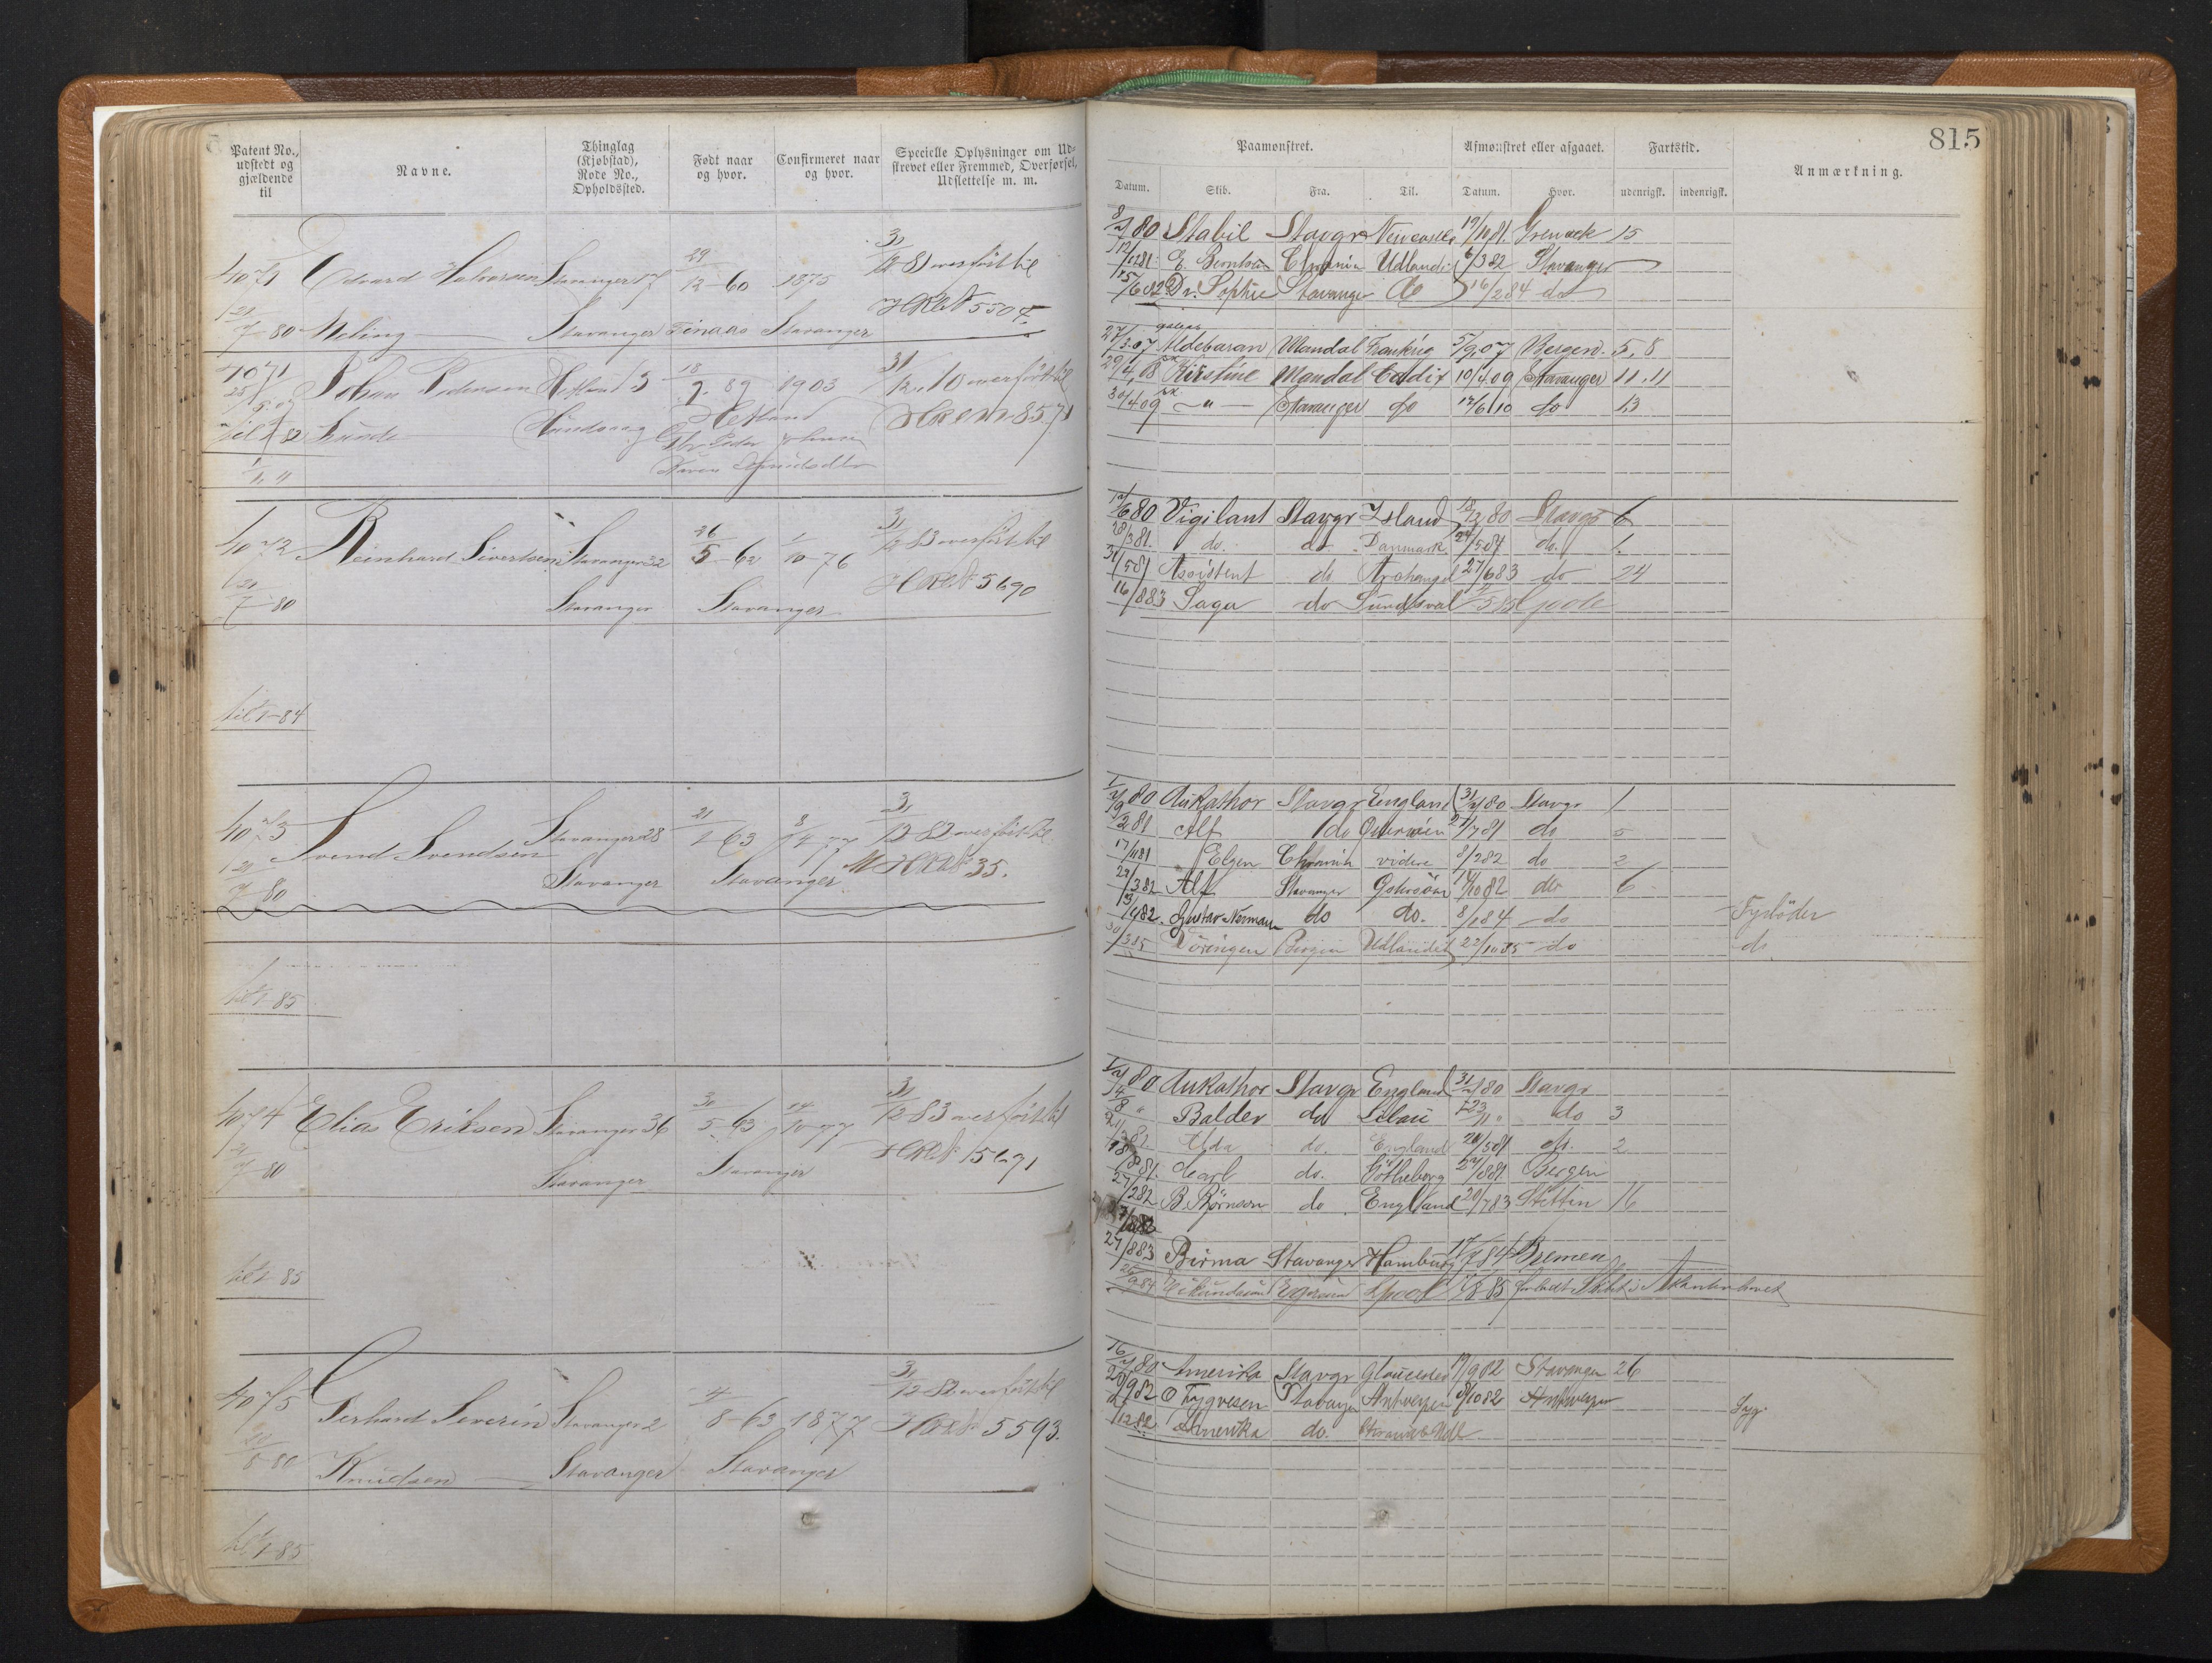 Patent No., udstedt og gjældende til
Navne.
Thinglag (Kjøbstad), Rode No., Opholdssted.
Født naar og hvor.
Confirmeret naar og hvor.
Specielle Oplysninger om Udskrevet eller Fremmed, Overførsel, Udslettelse m. m.
4071 Edvard Halvorsen Stavanger 17 29/12-60 1875 31/12 81 overført til
7-80 Meling Stavanger Finaas Stavanger HRN 5504
4071 Johan Pedersen Hetland 3 18/9 89 1903 31/12 10 overført til
Lunde Hundvaag Hetland 8571
4072 Reinhard Sivertsen Stavanger 32 26/5-62 1/10-76 31/12 83 overført til
21/7-80 Stavanger Stavanger 5690
til 1-84
4073 Svend Svendsen Stavanger 28 21/1 63 8/4-77 31/12 82 overført til
7-80 Stavanger Stavanger 35.
til 1-85
4074 Elias Eriksen Stavanger 36 30/5-63 14/10-77 31/12 83 overført til
7-80 Stavanger Stavanger 5691
til 1-85
4075 Gerhard Severin Stavanger 2 4/8-63 1877 31/12 82 overført til
80 Knudsen Stavanger Stavanger 5593.
til 1-85
815
Paamønstret.
Afmønstret eller afgaaet.
Fartstid.
Anmærkning.
Datum.
Skib.
Fra.
Til.
Datum.
Hvor.
udenrigsk.
indenrigsk.
8/7 80 Stabil Stavgr Newcastle 19/10 81. Grenock 15
E. Berntsen Chrania Udlandet 6/3 82 Stavanger
6 82 Dr. Sophie Stavanger do 16/2 84 do
27/3.07 Aldebaran Mandal Frankrig 5/9.07 Bergen. 5,8
29/4,08 Kirstine Mandal Cadix 10/4.09 Stavanger 11.11
30/4 09 — " — Stavanger do 12/6 10 do 1,3
6 80 Vigilant Stavgr Island 18/12 80 Stavgr 6
18/3 81. do. do Danmark 24/5 81 do. 1.
31/5 81 Assistent do Archangel 27/6 83 do 24
16/8 83 Saga do Sundsval Goole
1/7 80 Aukathor Stavgr England 31/7 80 Stavgr 1
2 81 Alf do 7 81 do 5
17/11 81 Elgen Chrania videre 8/2 82 do 2
3 82 Alf Stavanger 10 82 do 6
82. Gustav Nerman do do. 8/1 84 do Fyrbøder
30/3 85 Bergen Udlandet 22/10 85 do do
1/7 80 Aukathor Stavgr England 31/7 80 Stavgr
14/8 " Balder do Libau 23/11 " do 3
Alda do. England 20/5 81 do. 2
8 81. Carl do. Götheborg 27/8 81 Bergen
27/2 82 B. Bjørnson do England 20/7 83 Stettin 16
27/8 83 Birma Stavanger Hamburg 17/7 84 Bremen
25/9 84 7/8 85 forladt Skibet i Atlanterhavet
16/7 80 Amerika Stavgr Gloucester 17/9 82 Stavanger 26
9 82 O Trygvesen Stavanger Antwerpen 9/10 82 Antwerpen Syg.
12 82 Amerika do.